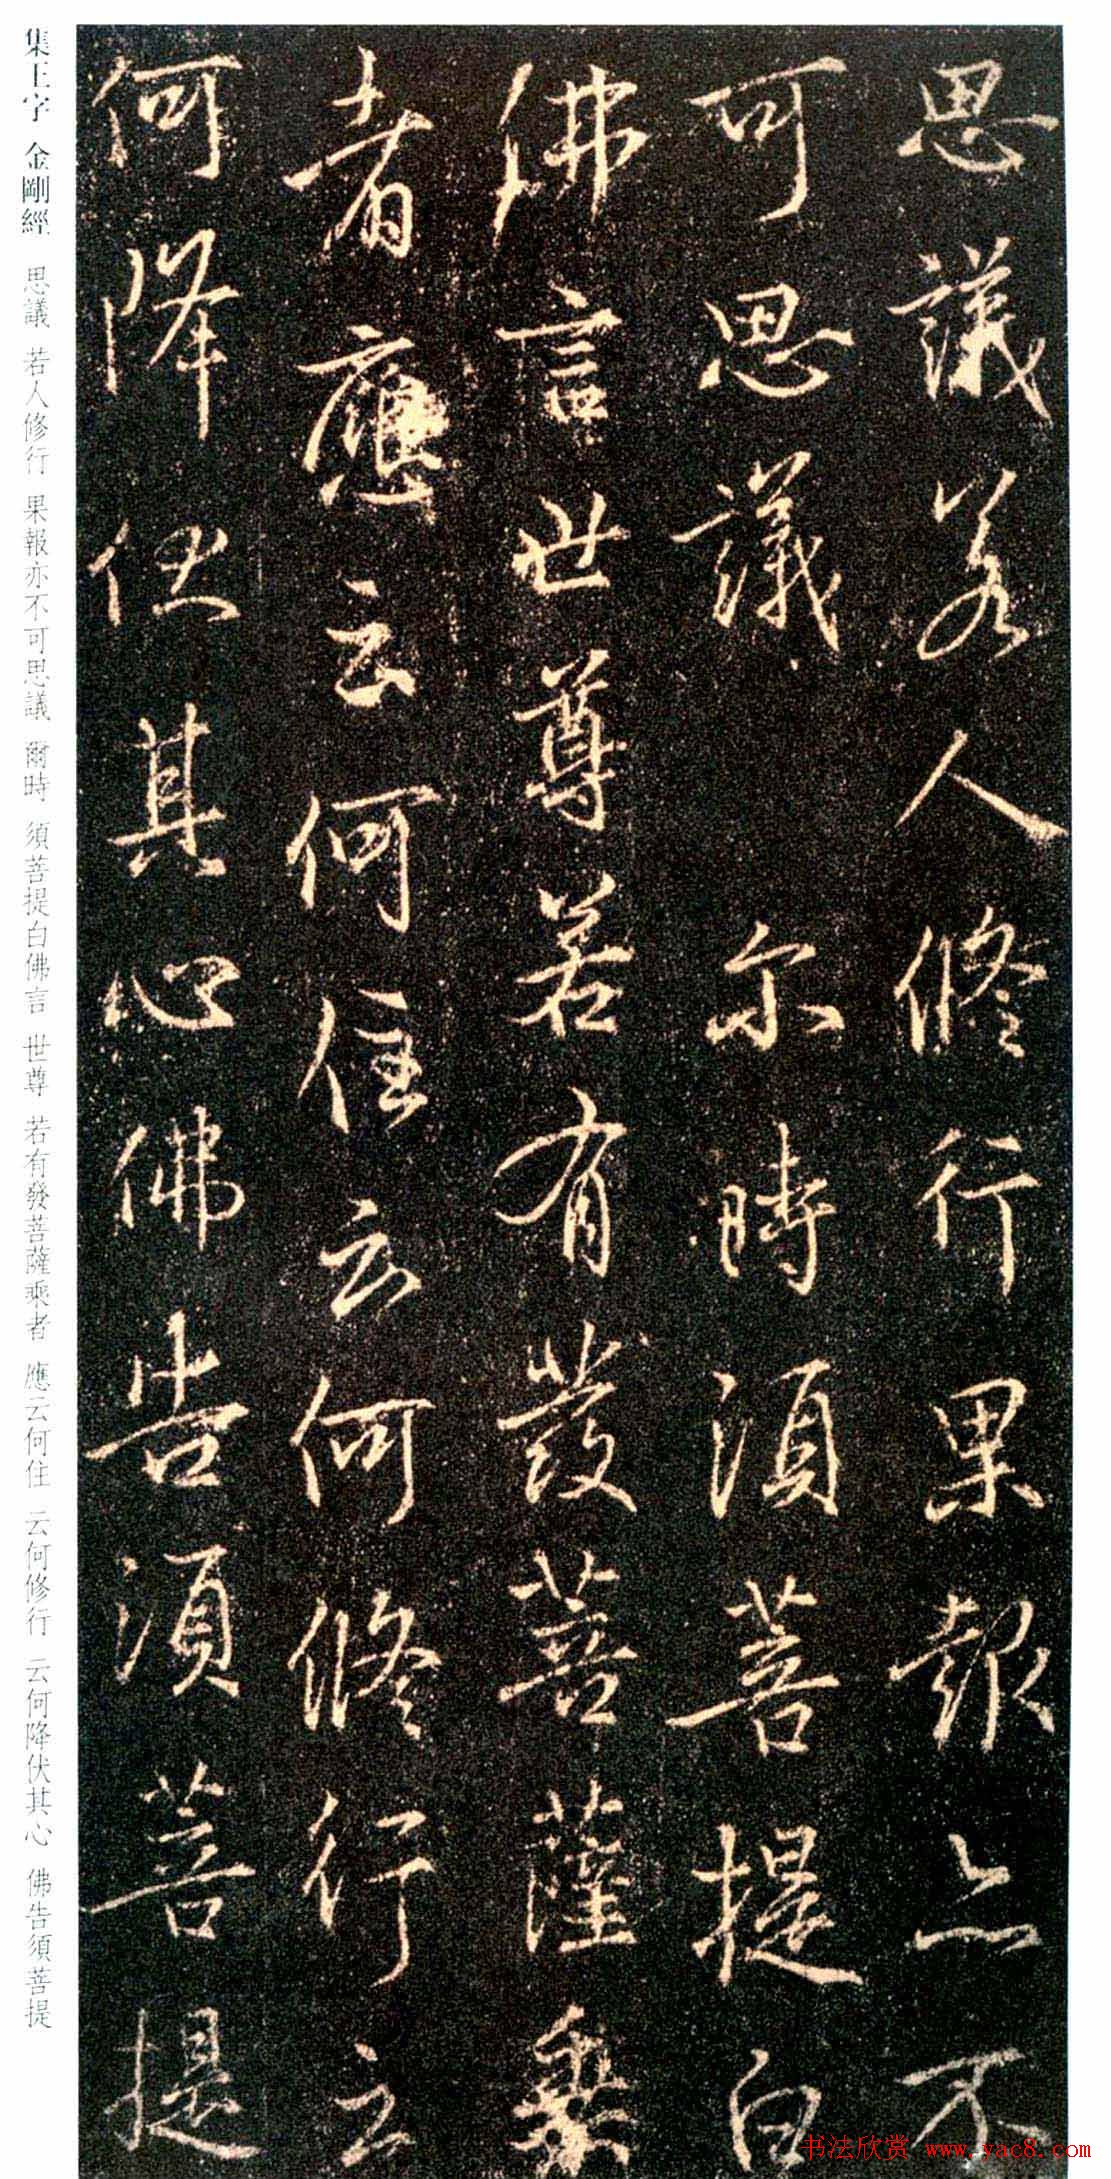 思議若人修行果報亦不
可思議尔時須菩提白
佛言世尊若有發菩薩乘
者應云何住云何修行云
何降伏其心佛告須菩提
集王字 金剛經 思議 若人修行 果報亦不可思議 爾時 須菩提白佛言 世尊 若有發菩薩乘者 應云何住 云何修行 云何降伏其心 佛告須菩提
书法欣赏 www.yac8.com